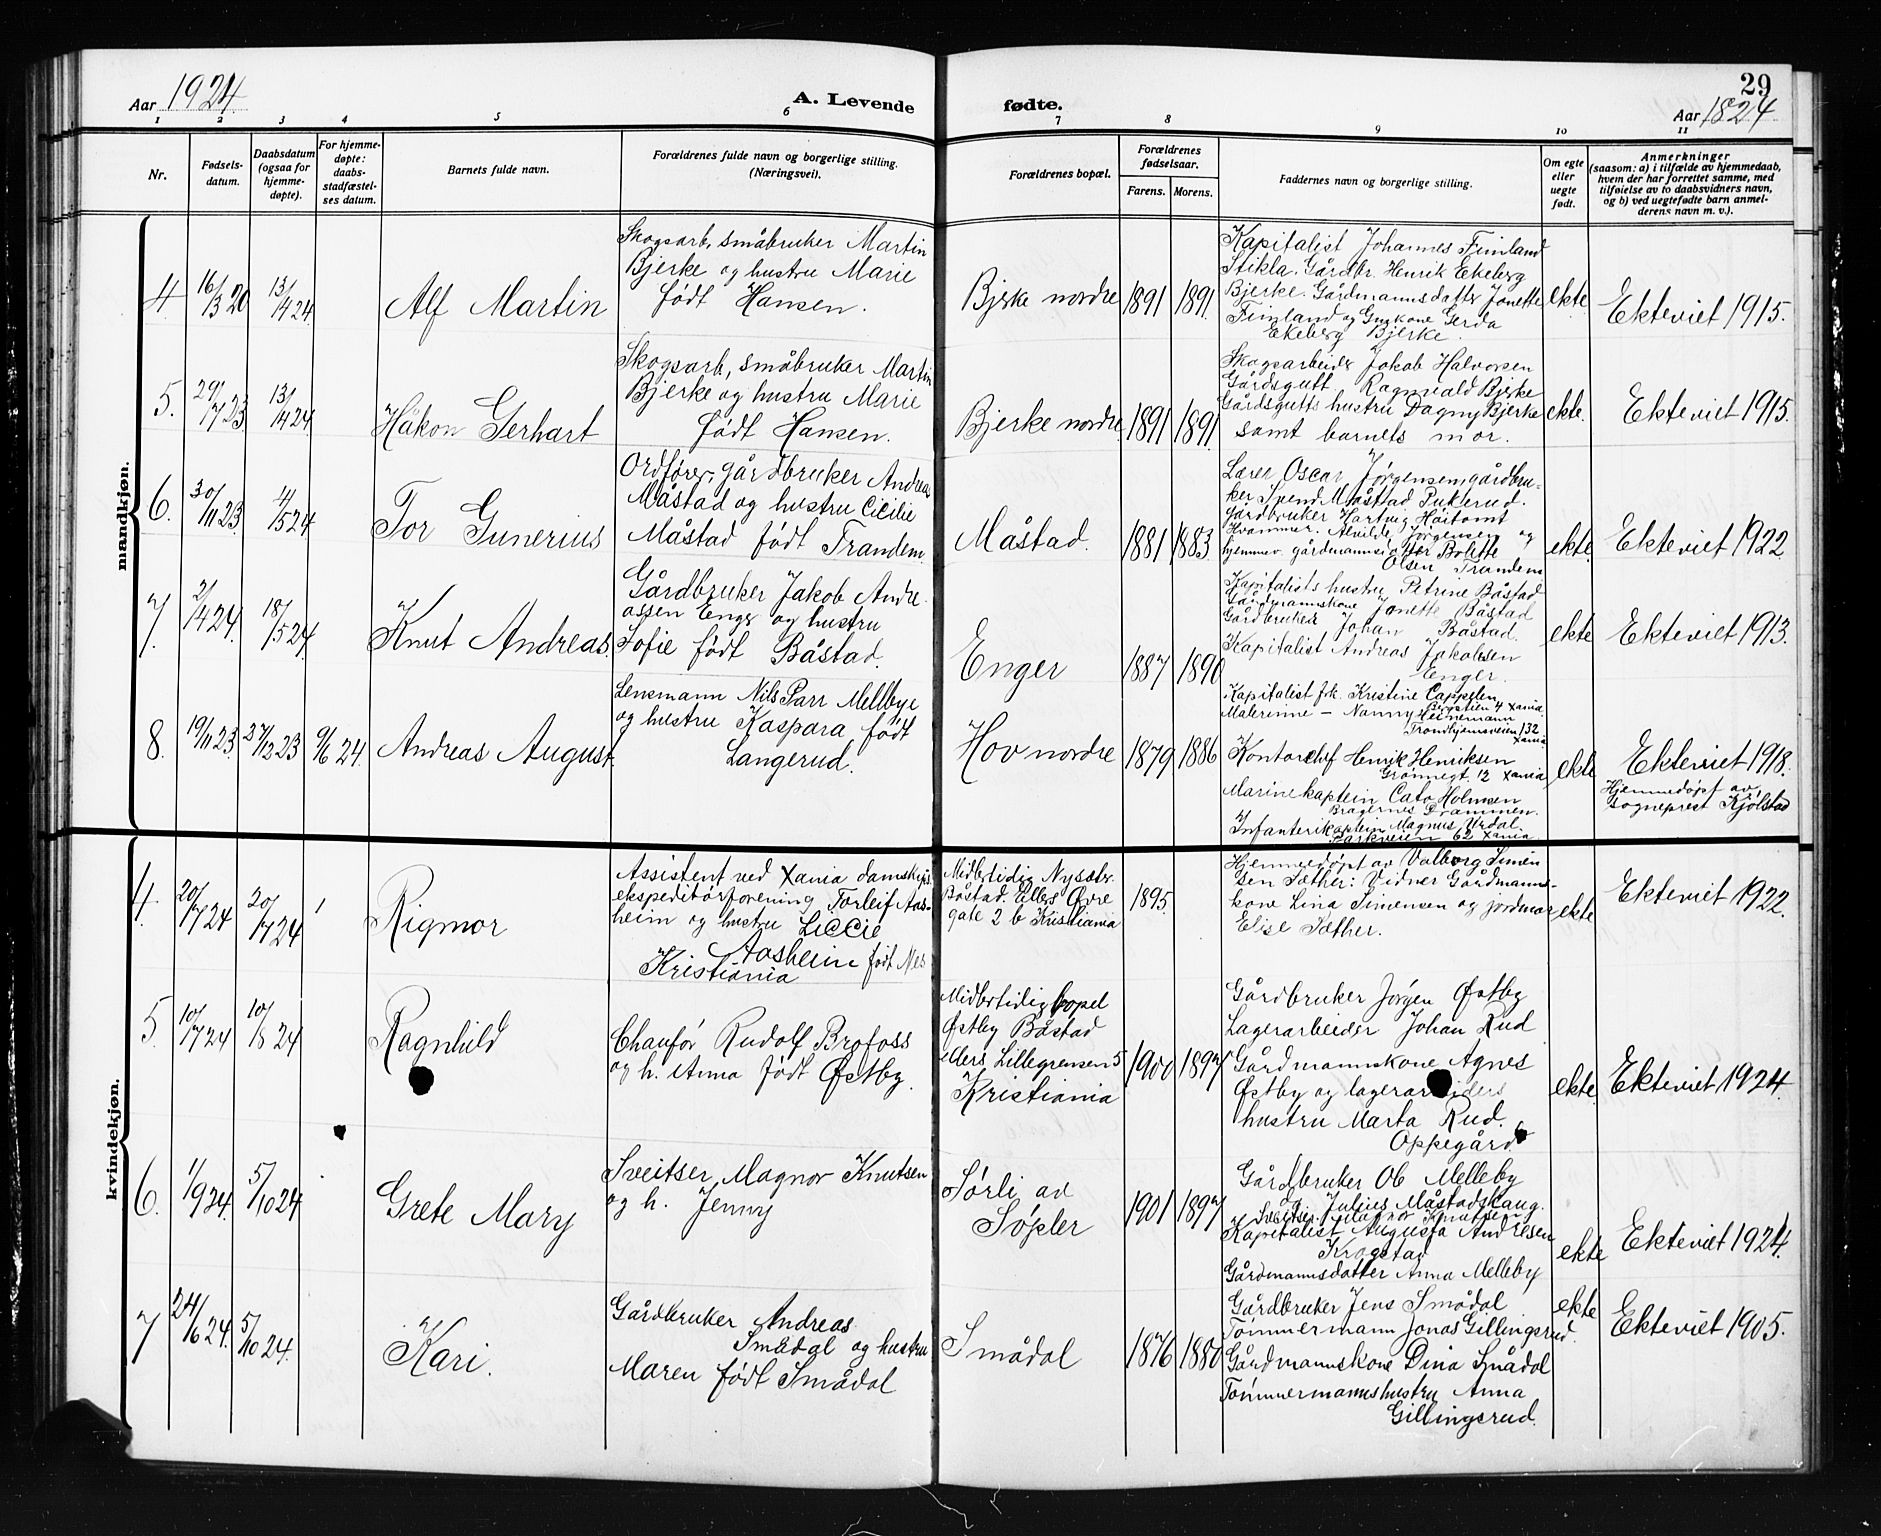 Aar 1924
A. Levende
fødte.
29
Aar 1824.
1 2 3 4 5 6 7 8 9 10 11
Nr.
Fødsels-
datum.
Daabsdatum
(ogsaa for
hjemme-
døpte).
For hjemme-
døpte:
daabs-
stadfæstel-
ses datum.
Barnets fulde navn.
Forældrenes fulde navn og borgerlige stilling.
(Næringsvei).
Forældrenes bopæl.
Forældrenes
fødselsaar.
Farens. Morens.
Faddernes navn og borgerlige stilling.
Om egte
eller
uegte
født.
Anmerkninger
(saasom: a) i tilfælde av hjemmedaab,
hvem der har forrettet samme, med
tilføielse av to daabsvidners navn,
og b) ved uegtefødte barn anmel-
derens navn m. v.).
mandkjøn.
4
16/3 20
13/4 24.
Alf Martin
Skogsarb, småbruker Martin
Bjerke og hustru Marie
født Hansen.
Bjerke nordre
1891
1891.
Kapitalist Johannes Finland
Stikla. Gårdbr. Henrik Ekeberg
Bjerke. Gårdmannsdatter Jonette
Finland og Gmkone Gerda
Ekeberg Bjerke.
ekte.
Ekteviet 1915.
5.
29/7 23
13/4 24.
Håkon Gerhart
Skogsarb, småbruker Martin
Bjerke og hustru Marie
født Hansen.
Bjerke nordre
1891
1891
Skogsarbeider Jakob Halvorsen
Gårdsgutt Ragnvald Bjerke
Gårdsgutts hustru Dagny Bjerke
samt barnets mor.
ekte.
Ekteviet 1915.
6.
30/11 23.
4/5 24
Tor Gunerius
Ordfører, gårdbruker Andreas
Måstad og hustru Cicilie
Måstad født Trandem.
Måstad.
1881
1883
Lærer Oscar Jørgensen gårdbru-
ker Svend Måstad Pukerud.
Gårdbruker Hartvig Høitomt
Hvammer. Alvilde Jørgensen og
hjemmev. gårdmannsdatter Bolette
Olsen Trandem
ekte.
Ekteviet 1922
7.
2/4 24.
18/5 24.
Knut Andreas.
Gårdbruker Jakob Andre-
assen Enger og hustru
Sofie født Båstad.
Enger
1887
1890
Kapitalists hustru Petrine Båstad
Gårdmannskone Jonette Båstad
Gårdbruker Johan Båstad.
Kapitalist Andreas Jakobsen
Enger.
ekte
Ekteviet 1913.
8.
19/11 23.
27/12 23
9/6 24.
Andreas August.
Lensmann Nils Parr Mellbye
og hustru Kaspara født
Langerud.
Hov nordre
1879
1886
Kapitalist frk. Kristine Cappelen
Bergstien 4 Xania.
Malerinne - Nanny Heinemann
Trondhjemsveien 132
Xania
Kontorchef Henrik Henriksen
Grønnegt. 12 Xania
Marinekaptein Cato Holmsen
Bragernes Drammen.
Infanterikaptein Magnus Urdal.
Parkveien 62 Xania
ekte
Ekteviet 1918.
Hjemmedøpt av
sogneprest Kjølstad
kvindekjøn.
4.
20/7 24
20/7 24
Rigmor
Assistent ved Xania damskips
ekspeditørforening Torleif Aas-
heim og hustru Liccie
Aasheim født Nes
Kristiania
Midlertidig Nysæter
Båstad. Ellers Øvre
gate 2 b Kristiania
1895.
Hjemmedøpt av Valborg Simen
sen Sæther: Vidner Gårdmanns-
kone Lina Simensen og jordmor
Elise Sæther.
ekte
Ekteviet 1922.
5.
10/7 24
10/8 24
Ragnhild
Chaufør Rudolf Brofoss
og h. Anna født Østby.
Midlertidig bopel
Østby Båstad
ellers Lillegrensen 5
Kristiania
1900
1897
Gårdbruker Jørgen Østby
Lagerarbeider Johan Rud
Gårdmannskone Agnes
Østby og lagerarbeiders
hustru Marta Rud.
Oppegård
ekte.
Ekteviet 1924.
6.
1/9 24.
5/10 24
Grete Mary
Sveitser Magnor Knutsen
og h. Jenny
Sørli av
Søpler
1901
1897
Gårdbruker Ob Melleby
og Julius Måstadhaug.
Sveitser Magnor Knutsen
Kapitalist Augusta Andresen
Krogstad
Gårdmannsdatter Anna Melleby
ekte
Ekteviet 1924.
7
24/6 24.
5/10 24.
Kari.
Gårdbruker Andreas
Smådal og hustru
Maren født Smådal
Smådal
1876
1880
Gårdbruker Jens Smådal
Tømmermann Jonas Gillingsrud.
Gårdmannskone Dina Smådal
Tømmermannshustru Anna
Gillingsrud.
ekte
Ekteviet 1905.